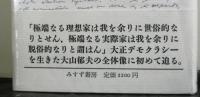 「極端なる理想家は我を余りに世俗的な
りとせん、極端なる実際家は我を余りに
脱俗的なりと謂はん」大正デモクラシー
を生きた大山郁夫の全体像に初めて迫る。
みすず書房 定価 3200円